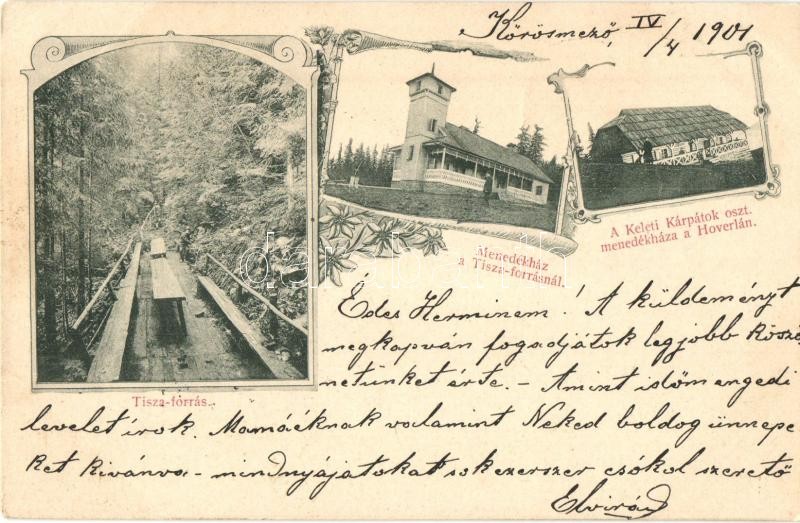 Körösmező, IV/4 1901
A Keleti Kárpátok oszt.
menedékháza a Hoverlán.
Menedékház
a Tisza-forrásnál.
Tisza-forrás.
Édes Herminem! A küldeményt
megkapván fogadjátok legjobb kösző-
netünket érte. - Amint időm engedi
levelet írok. Mamáéknak valamint Neked boldog ünnepe-
ket kivánva - mindnyájatokat sokezerszer csókol szerető
Elvirád